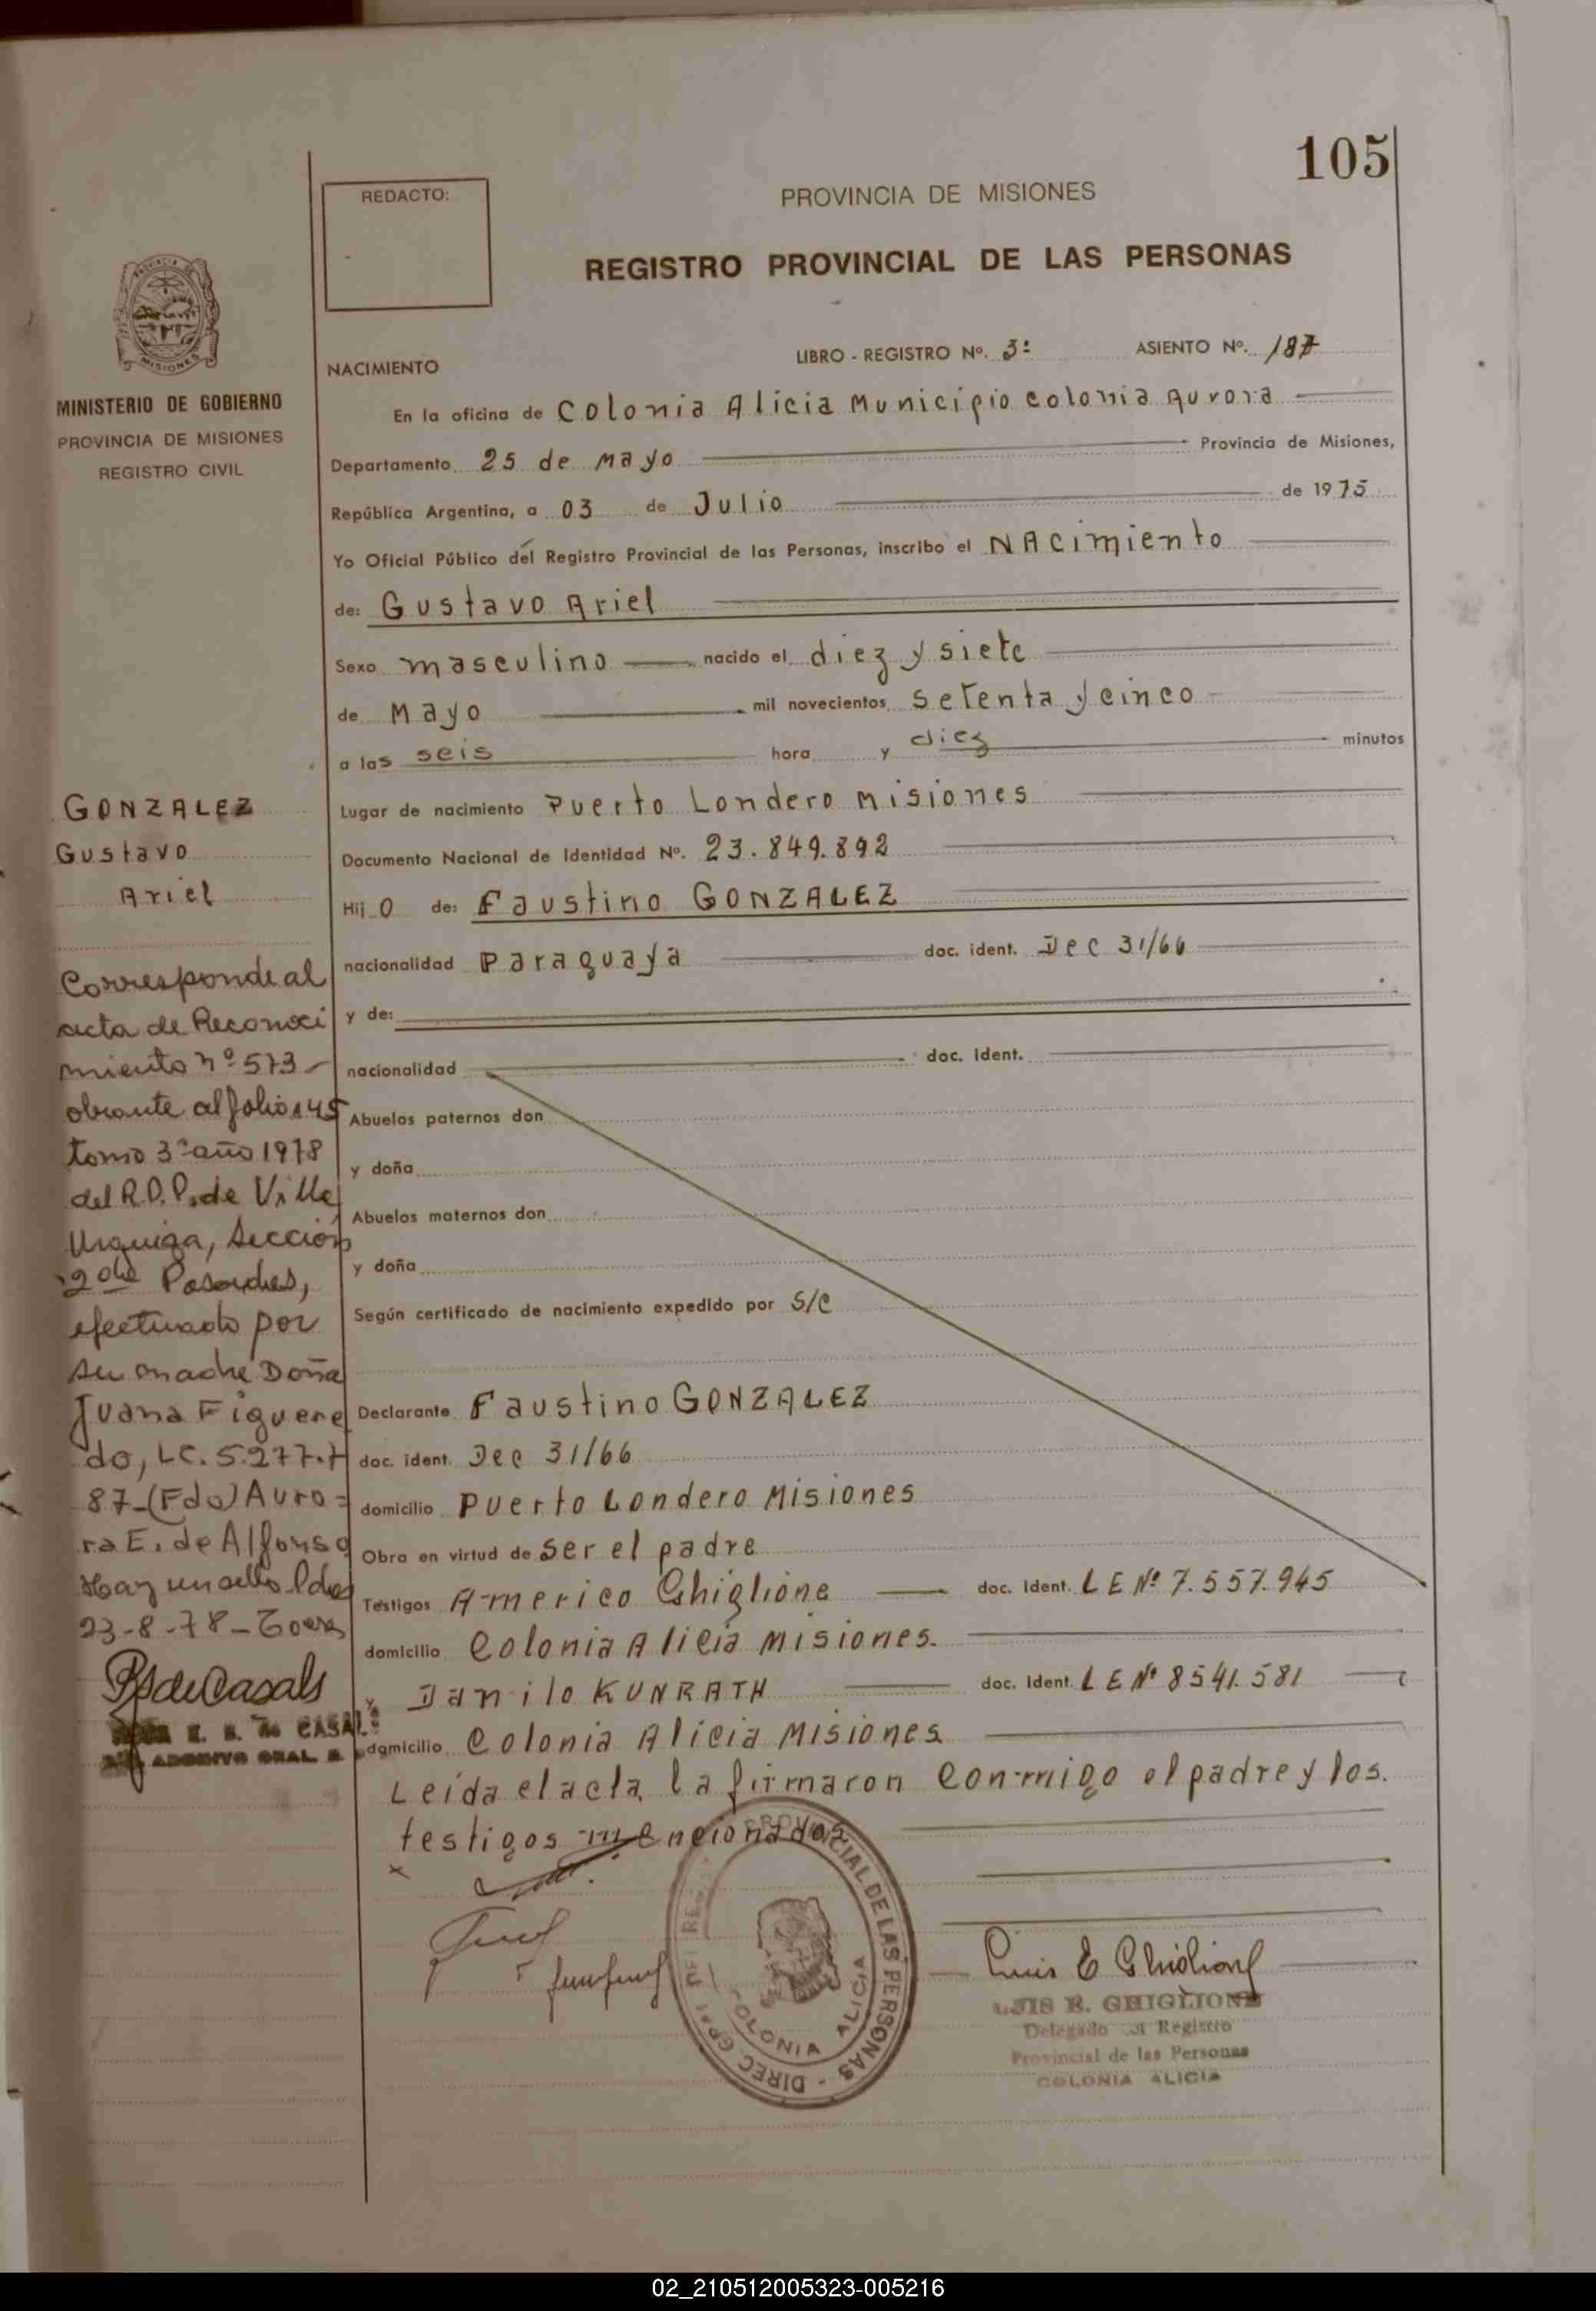 105
REDACTO:
PROVINCIA DE MISIONES
REGISTRO PROVINCIAL DE LAS PERSONAS
MINISTERIO DE GOBIERNO
PROVINCIA DE MISIONES
REGISTRO CIVIL
NACIMIENTO LIBRO - REGISTRO Nº. 3º ASIENTO Nº. 187
En la oficina de Colonia Alicia Municipio Colonia Aurora
Departamento 25 de Mayo Provincia de Misiones,
República Argentina, a 03 de Julio de 1975
Yo Oficial Público del Registro Provincial de las Personas, inscribo el NAcimiento
de: Gustavo Ariel
Sexo masculino nacido el diez y siete
de Mayo mil novecientos setenta y cinco
a las seis hora y diez minutos
Lugar de nacimiento Puerto Londero Misiones
Documento Nacional de Identidad Nº. 23.849.892
Hij o de: Faustino GONZALEZ
nacionalidad Paraguaya doc. ident. Dec 31/66
y de:
nacionalidad doc. ident.
Abuelos paternos don
y doña
Abuelos maternos don
y doña
Según certificado de nacimiento expedido por S/C
Declarante Faustino GONZALEZ
doc. ident. Dec 31/66
domicilio Puerto Londero Misiones
Obra en virtud de ser el padre
Testigos Americo Ghiglione doc. Ident. LE Nº 7.557.945
domicilio Colonia Alicia Misiones.
y Danilo KUNRATH doc. Ident. LE Nº 8541.581
domicilio Colonia Alicia Misiones
Leída el acta, la firmaron conmigo el padre y los.
testigos mencionados
GONZALEZ
Gustavo
Ariel
Corresponde al
acta de Reconoci
miento nº 573-
obrante al folio 145
tomo 3º año 1978
del R.P.P. de Villa
Urquiza, Sección
2da Posadas,
efectuado por
su madre Doña
Juana Figuere
do, LC. 5.277.7
87-(Fdo) Auro=
ra E. de Alfonso
Hay un sello Pdas
23-8-78-
de Casals
CASAL
Luis E Ghiglione
LUIS E. GHIGLIONE
Delegado del Registro
Provincial de las Personas
COLONIA ALICIA
PROVINCIAL DE LAS PERSONAS - DIREC. GRAL DEL REG.
COLONIA ALICIA
02_210512005323-005216